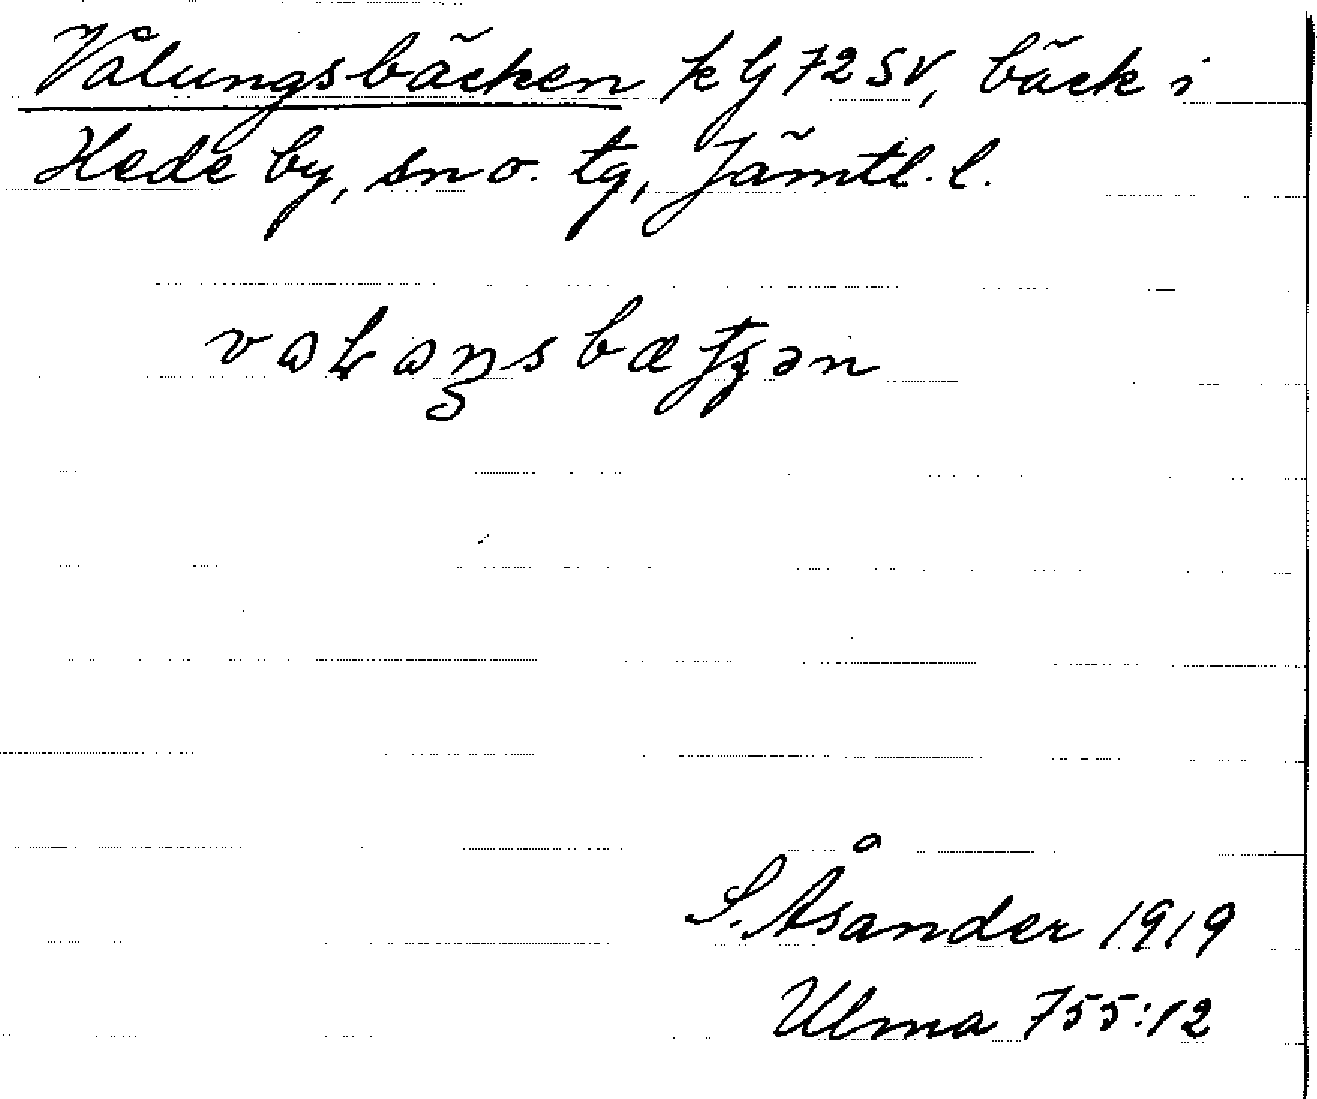 Vålungsbäcken kG72SV, bäck i
Hede by, sn o. tg, Jämtl. l.
S. Åsander 1919
Ulma 755:12